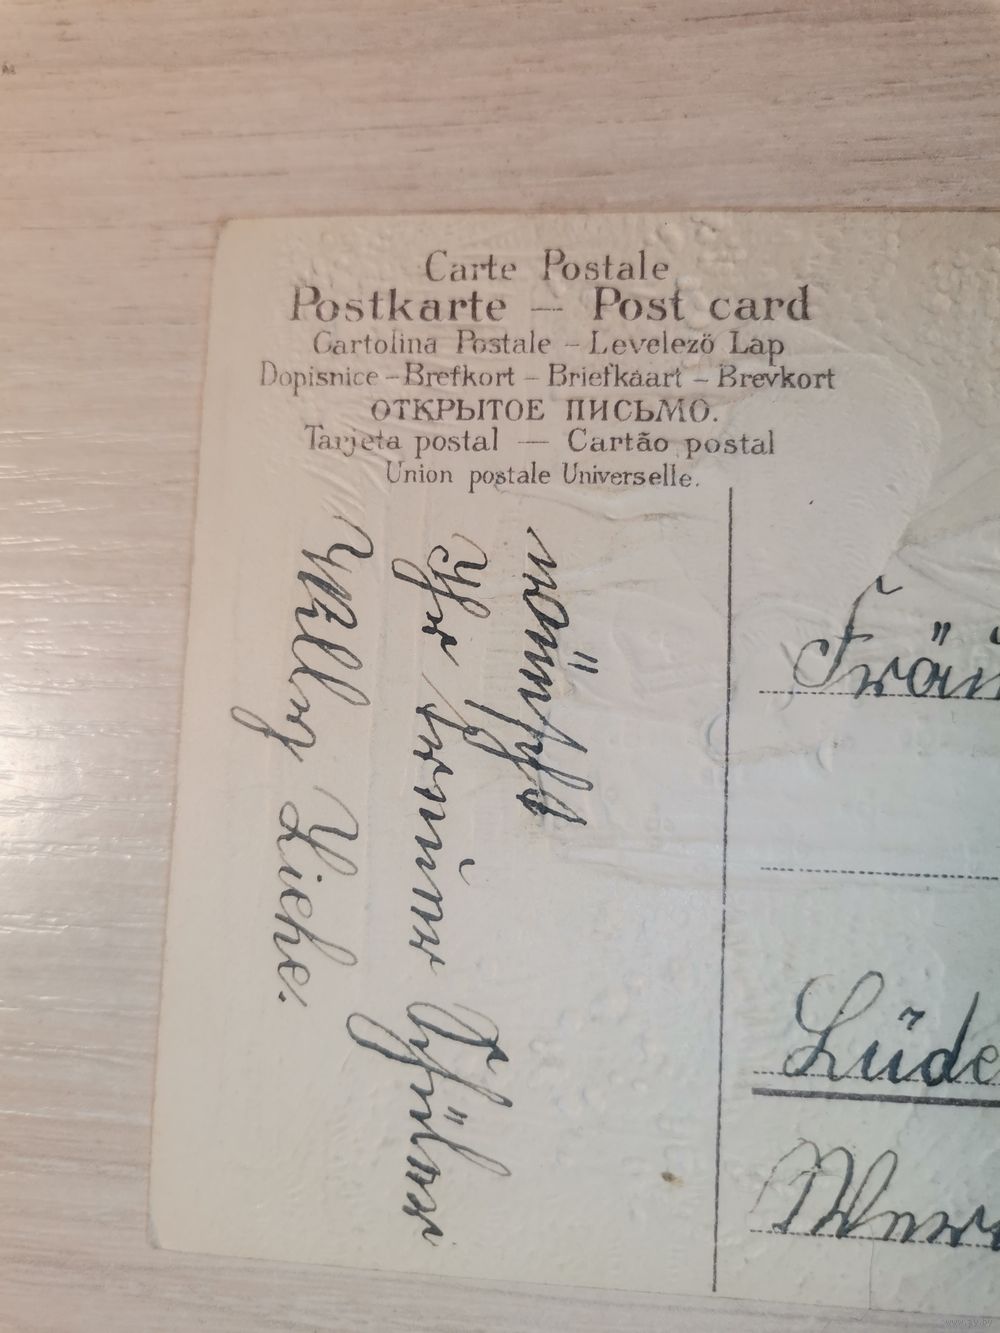 Carte Postale
Postkarte — Post card
Cartolina Postale – Levelező Lap
Dopisnice – Brefkort – Briefkaart – Brevkort
ОТКРЫТОЕ ПИСЬМО.
Tarjeta postal — Cartão postal
Union postale Universelle.
wünscht
Ihr Schüler
Willy Ziehe.
Fräu
Lüde